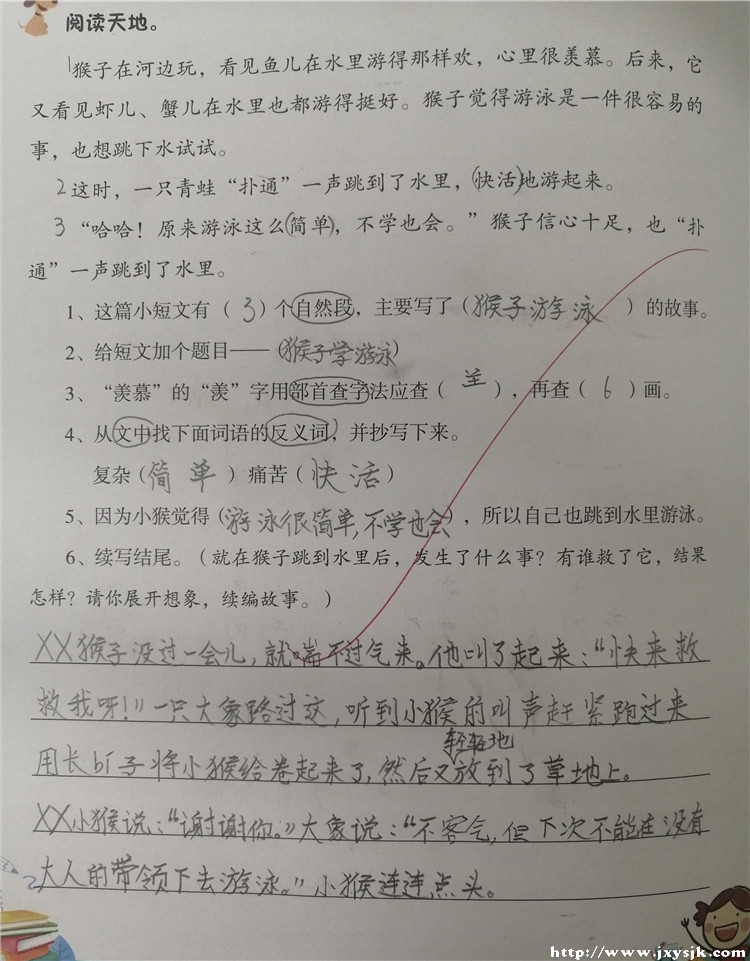 阅读天地。
1猴子在河边玩，看见鱼儿在水里游得那样欢，心里很羡慕。后来，它
又看见虾儿、蟹儿在水里也都游得挺好。猴子觉得游泳是一件很容易的
事，也想跳下水试试。
2这时，一只青蛙“扑通”一声跳到了水里，(快活)地游起来。
3“哈哈！原来游泳这么(简单)，不学也会。”猴子信心十足，也“扑
通”一声跳到了水里。
1、这篇小短文有（3）个自然段，主要写了（猴子游泳）的故事。
2、给短文加个题目——（猴子学游泳）
3、“羡慕”的“羡”字用部首查字法应查（⺷），再查（6）画。
4、从文中找下面词语的反义词，并抄写下来。
复杂（简单）痛苦（快活）
5、因为小猴觉得（游泳很简单,不学也会），所以自己也跳到水里游泳。
6、续写结尾。（就在猴子跳到水里后，发生了什么事？有谁救了它，结果
怎样？请你展开想象，续编故事。）
XX猴子没过一会儿，就喘不过气来。他叫了起来：“快来救
救我呀！”一只大象路过这，听到小猴的叫声赶紧跑过来
用长bí子将小猴给卷起来了，然后又轻轻地放到了草地上。
XX小猴说：“谢谢你。”大象说：“不客气，但下次不能在没有
大人的带领下去游泳。”小猴连连点头。
http://www.jxysjk.com